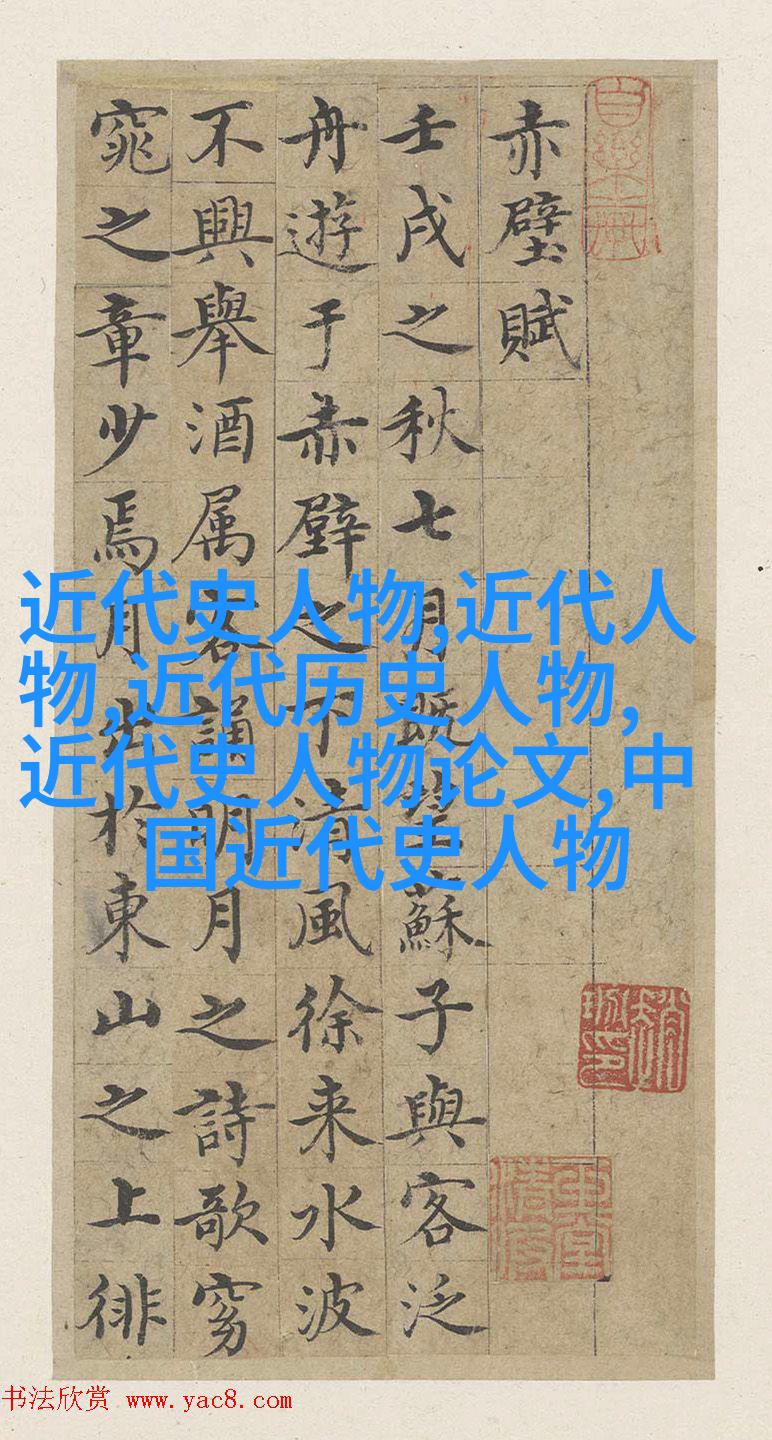 赤壁賦
壬戌之秋七月既望蘇子與客泛
舟遊于赤壁之下清風徐来水波
不興舉酒属客誦明月之詩歌窈
窕之章少焉月出於東山之上徘
近代史人物,近代人
物,近代历史人物,
近代史人物论文,中
国近代史人物
书法欣赏 www.yac8.com